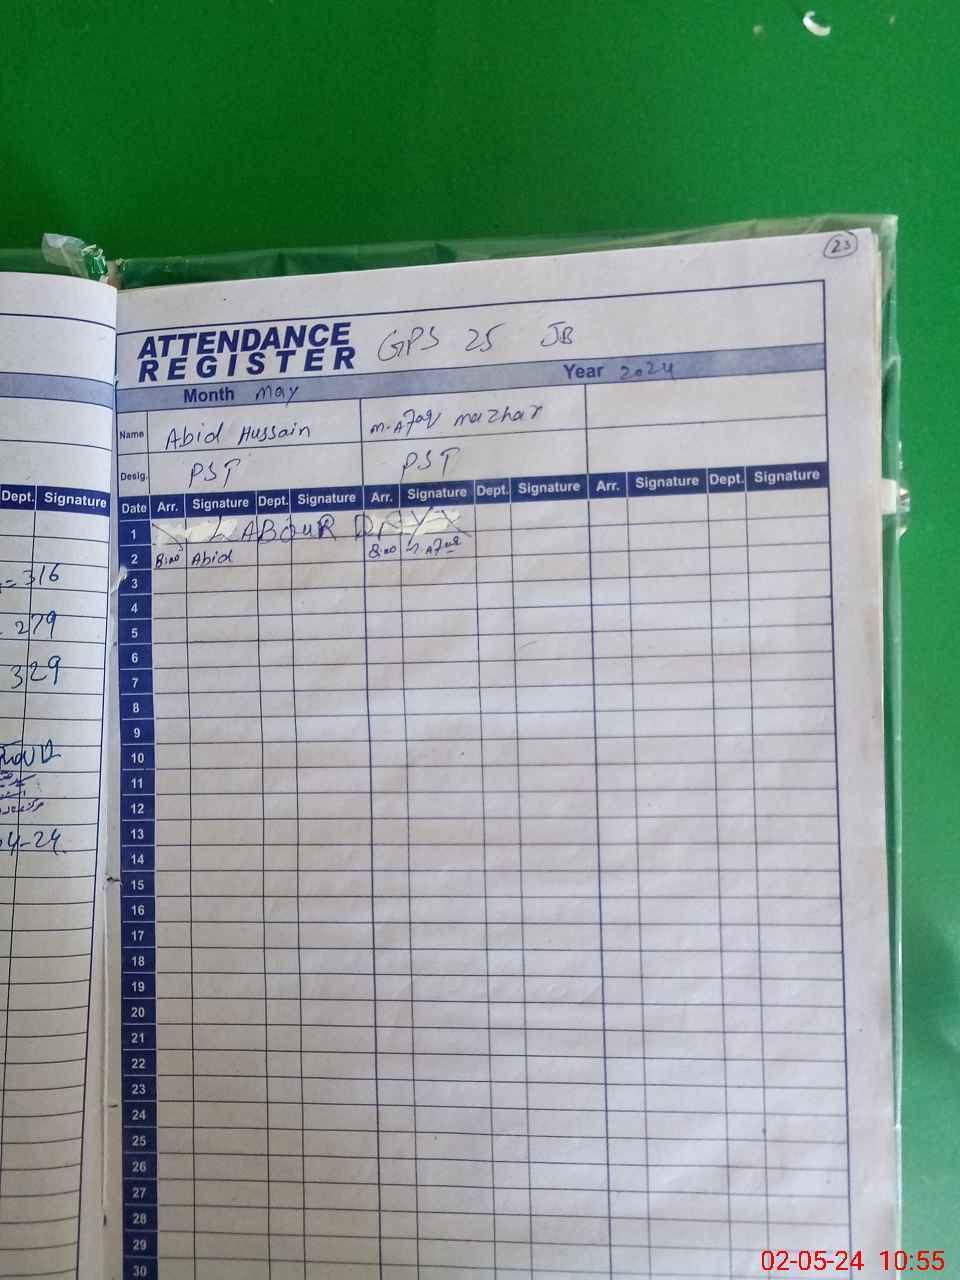 23
ATTENDANCE
REGISTER
GPS 25 JB
Month May Year 2024
Name Abid Hussain M. Afaq Mazhar
Desig. PST PST
Dept. Signature
Date Arr. Signature Dept. Signature Arr. Signature Dept. Signature Arr. Signature Dept. Signature
1 LABOUR DAY
2 8:00 Abid 8:00 M. Afaq
3
4
5
6
7
8
9
10
11
12
13
14
15
16
17
18
19
20
21
22
23
24
25
26
27
28
29
30
= 316
279
329
04-24
02-05-24 10:55